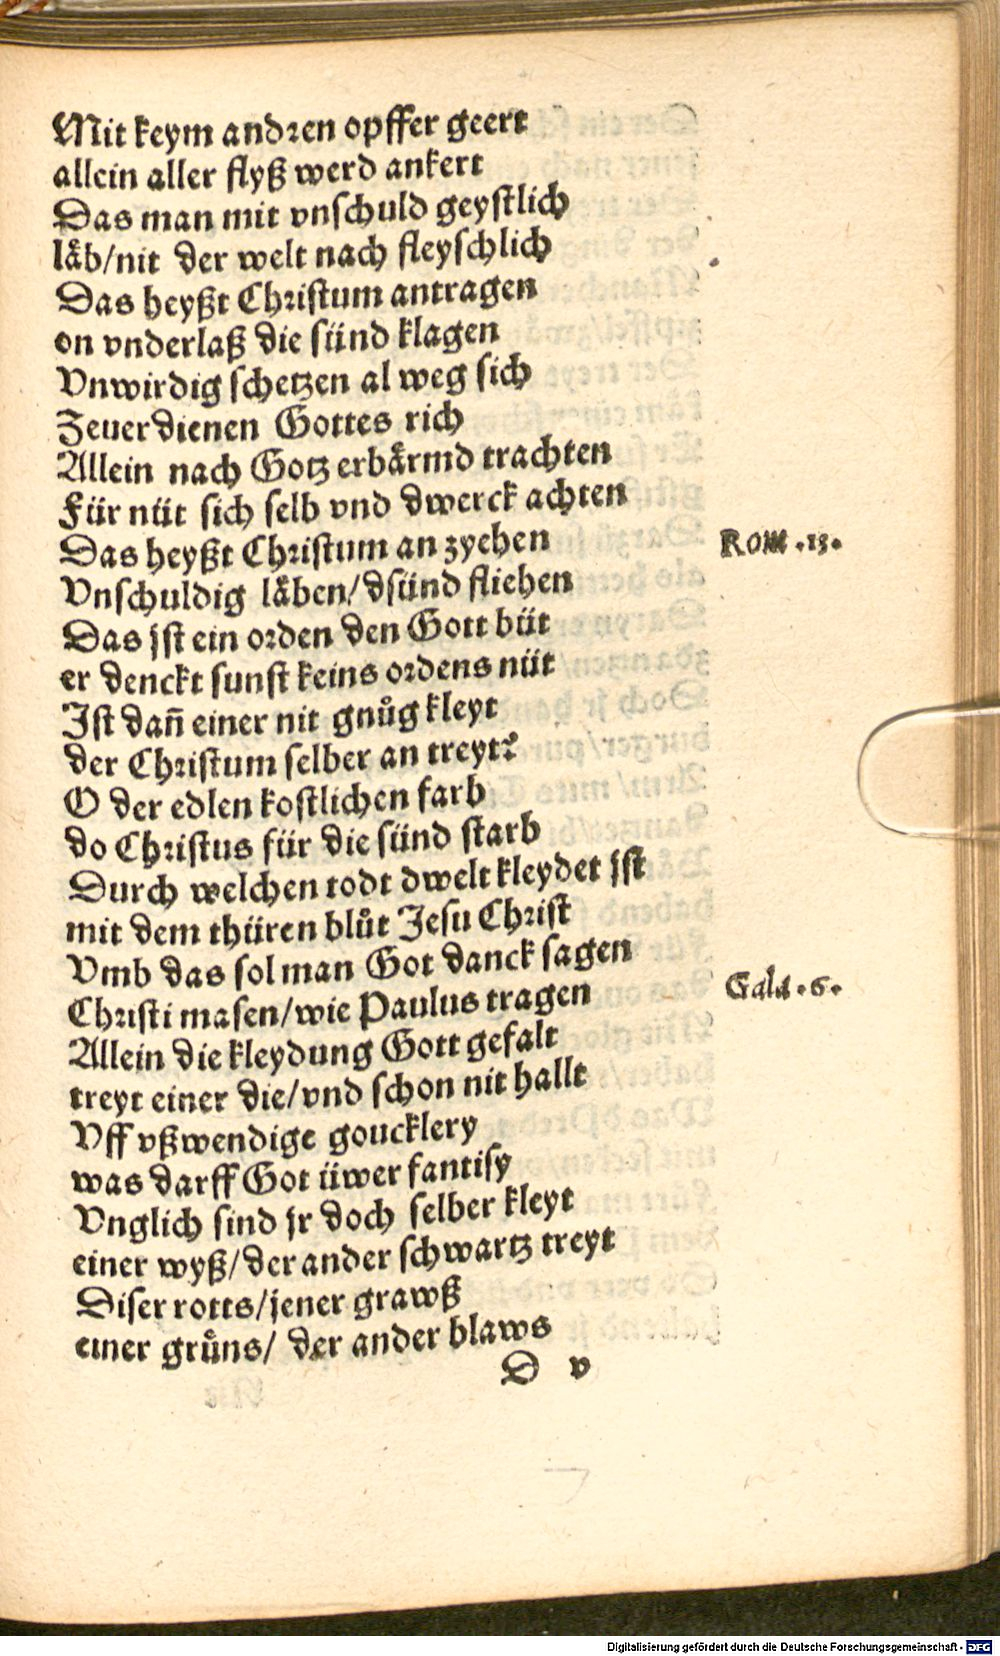 Mit keym andren opffer geert
allein aller flyß werd ankert
Das man mit vnschuld geystlich
låb/nit der welt nach fleyschlich
Das heyßt Christum antragen
on vnderlaß die sünd klagen
Vnwirdig schetzen al weg sich
Zeuerdienen Gottes rich
Allein nach Gotz erbårmd trachten
Für nüt sich selb vnd dwerck achten
Das heyßt Christum an zyehen
Rom .13.
Vnschuldig låben/dsünd fliehen
Das jst ein orden den Gott büt
er denckt sunst keins ordens nüt
Ist dañ einer nit gnůg kleyt
der Christum selber an treyt?
O der edlen kostlichen farb
do Christus für die sünd starb
Durch welchen todt dwelt kleydet jst
mit dem thüren blůt Jesu Christ
Vmb das sol man Got danck sagen
Christi masen/wie Paulus tragen
Gala .6.
Allein die kleydung Gott gefalt
treyt einer die/vnd schon nit hallt
Vff vßwendige goucklery
was darff Got üwer fantisy
Vnglich sind jr doch selber kleyt
einer wyß/der ander schwartz treyt
Diser rotts/jener grawß
einer grůns/ der ander blaws
D v
Digitalisierung gefördert durch die Deutsche Forschungsgemeinschaft - DFG